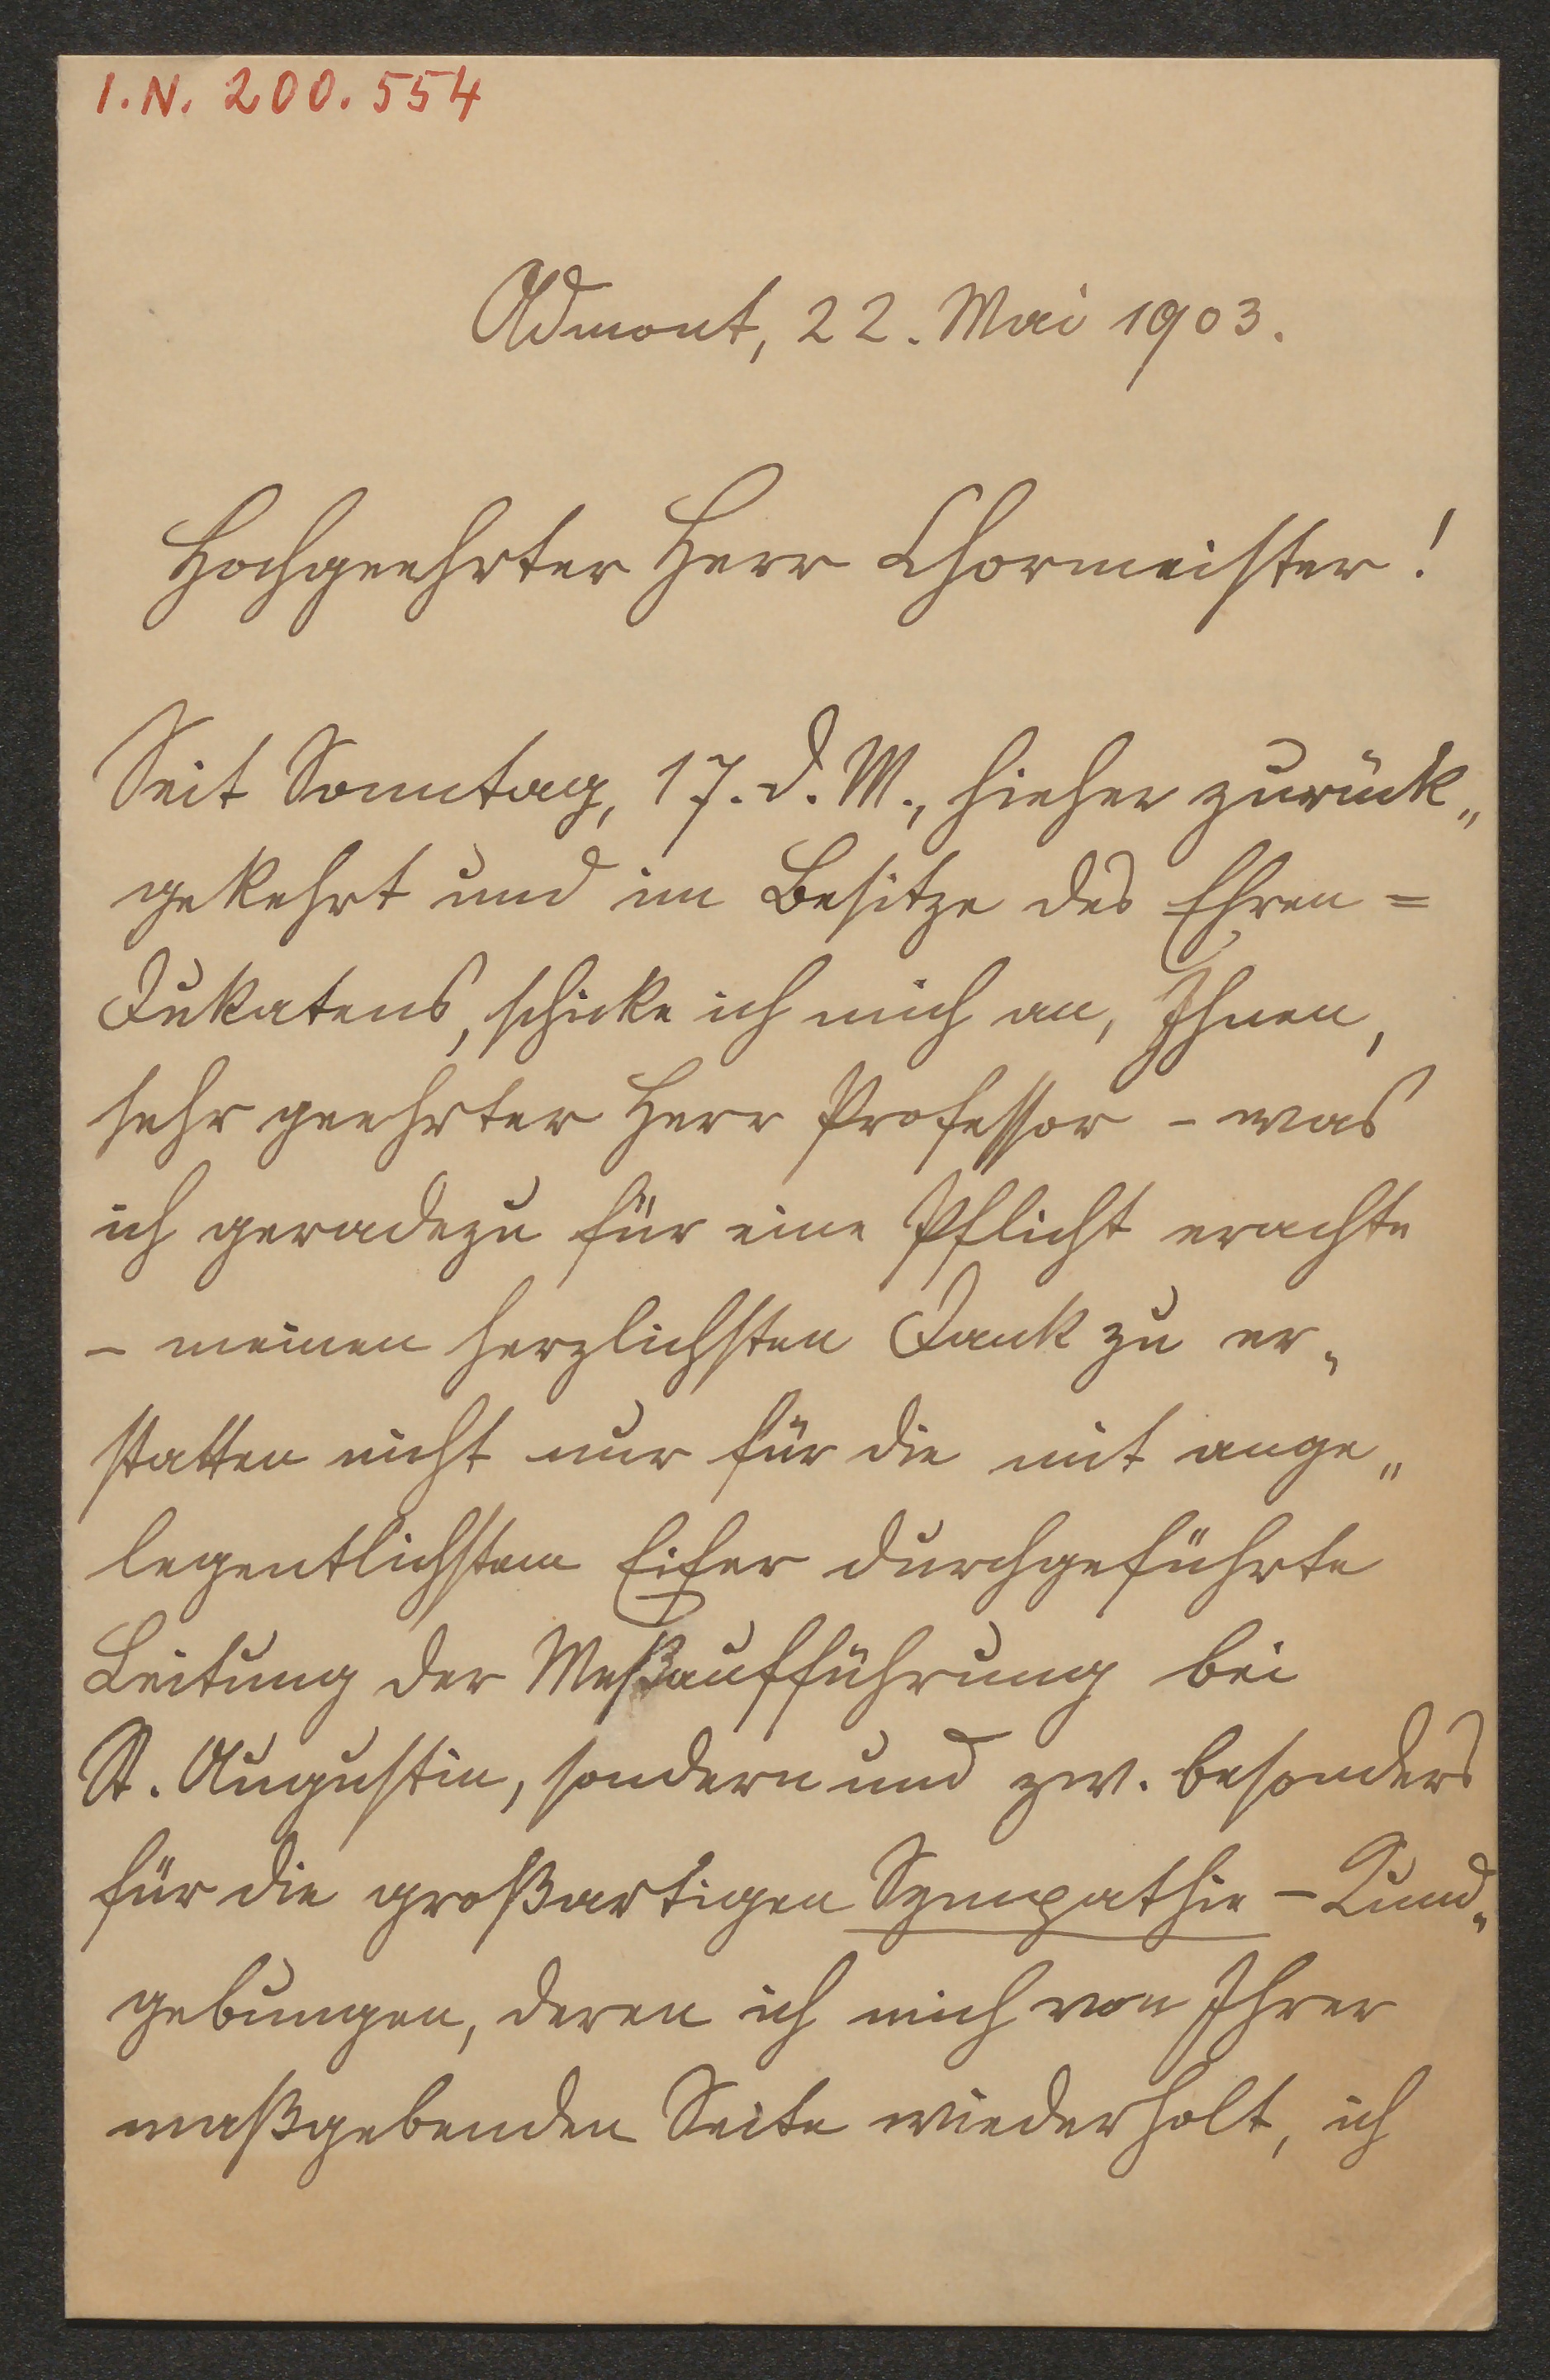 I.N. 200.554
Admont, 22. Mai 1903.
Hochgeehrter Herr Chormeister!
Seit Sonntag, 17. d. M., hieher zurück„
gekehrt und im Besitze des Ehren=
Dukatens, schicke ich mich an, Ihnen,
sehr geehrter Herr Professor – was
ich geradezu für eine Pflicht erachte
– meinen herzlichsten Dank zu er„
statten nicht nur für die mit ange„
legentlichstem Eifer durchgeführte
Leitung der Meßaufführung bei
St. Augustin, sondern und zw. besonders
für die großartigen Sympathie – Kund„
gebungen, deren ich mich von Ihrer
maßgebenden Seite wiederholt, ich